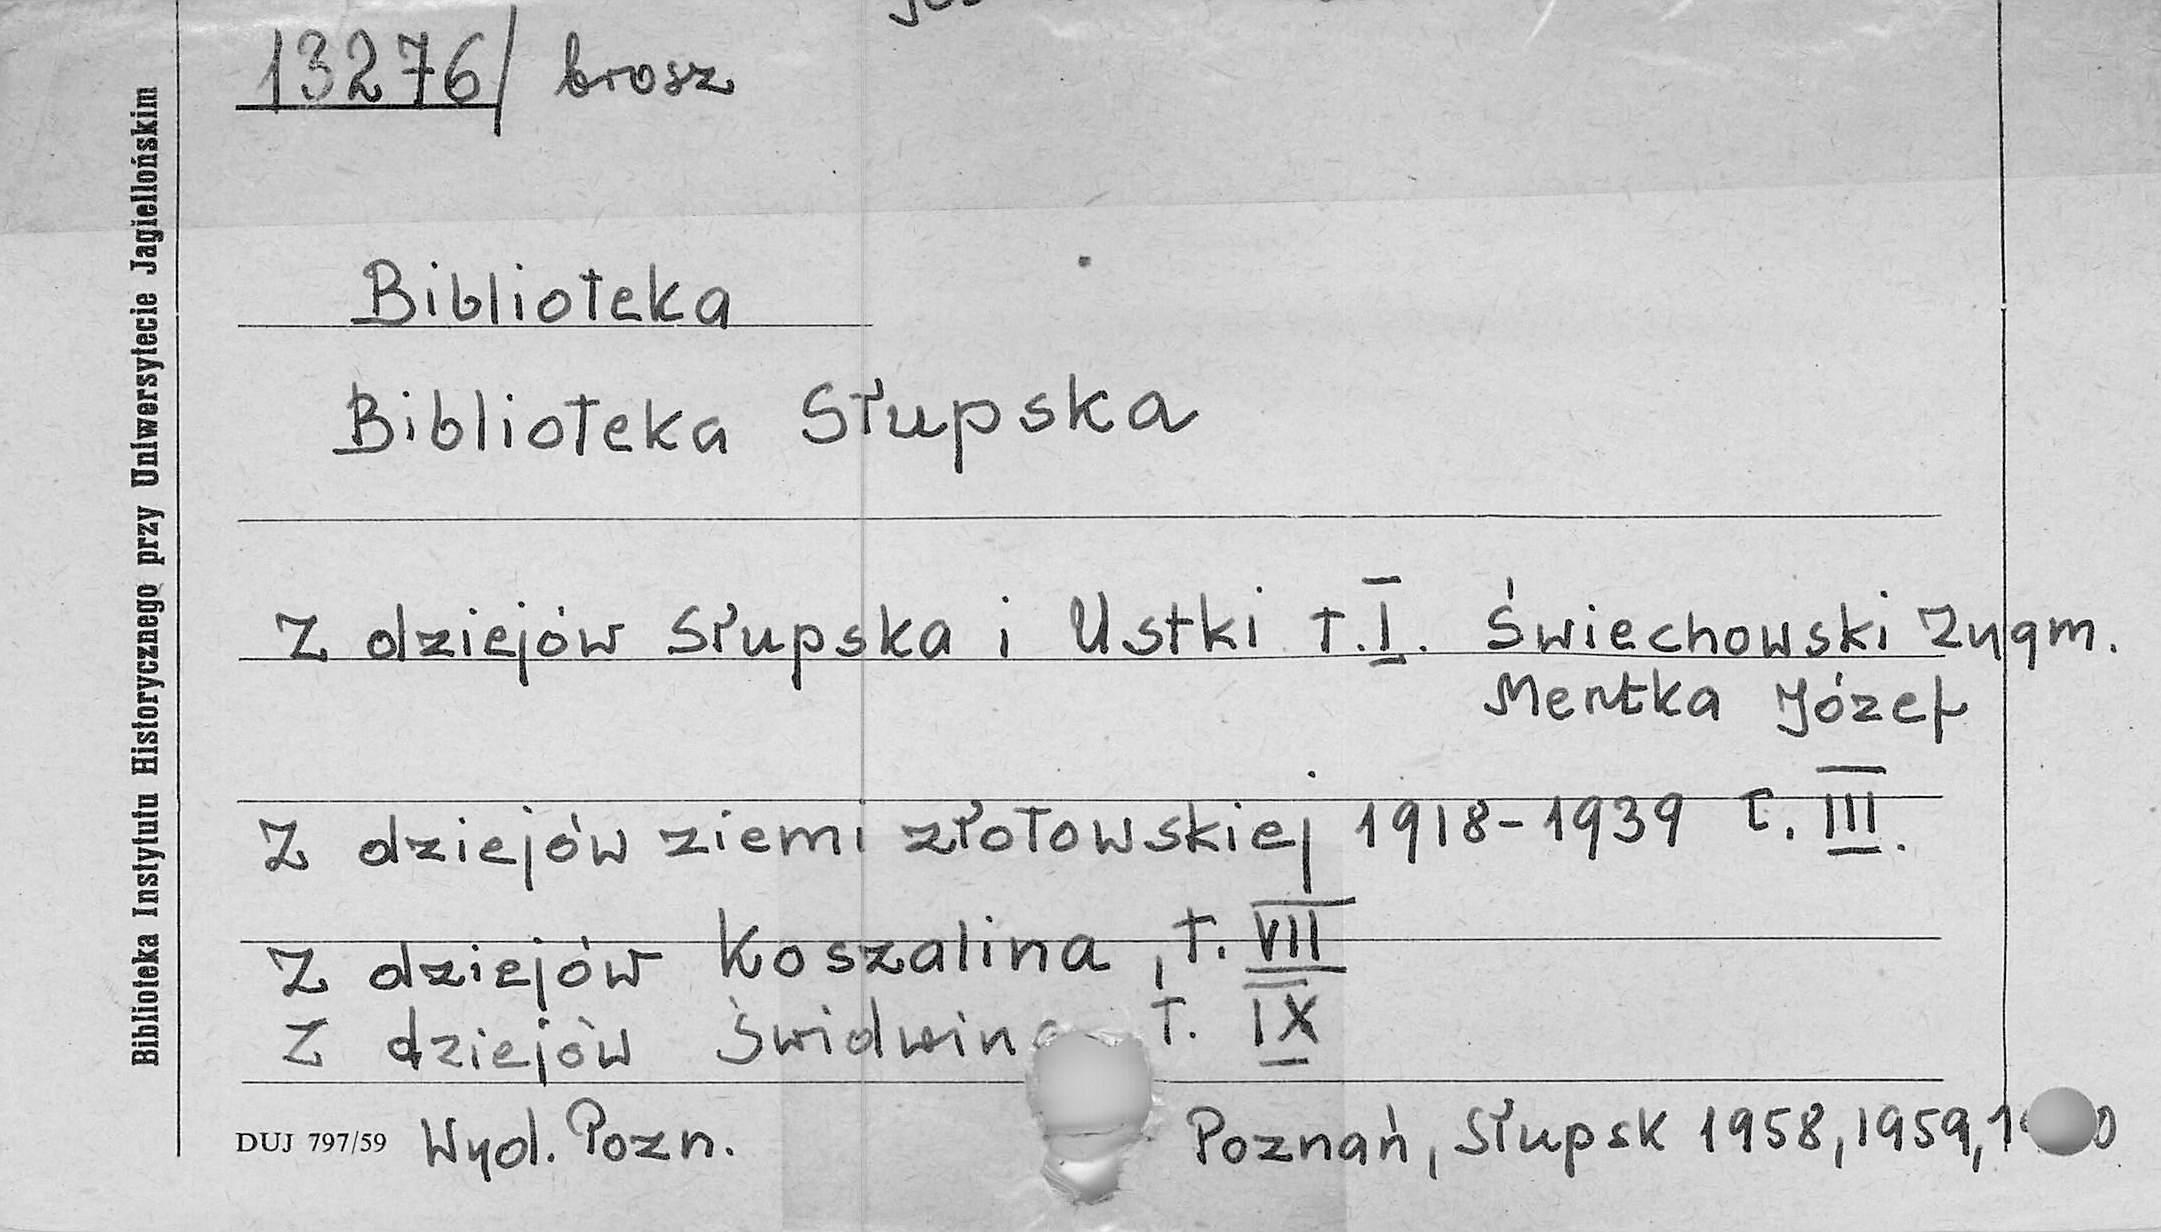 13276/ brosz
Biblioteka
Biblioteka Słupska
Z dziejów Słupska i Ustki t. I. Świechowski Zygm.
Mentka Józef
Z dziejów ziemi złotowskiej 1918-1939 t. III.
Z dziejów Koszalina, t. VII
Z dziejów Świdwina t. IX
DUJ 797/59 Wyd. Pozn. Poznań, Słupsk 1958, 1959,
Biblioteka Instytutu Historycznego przy Uniwersytecie Jagiellońskim